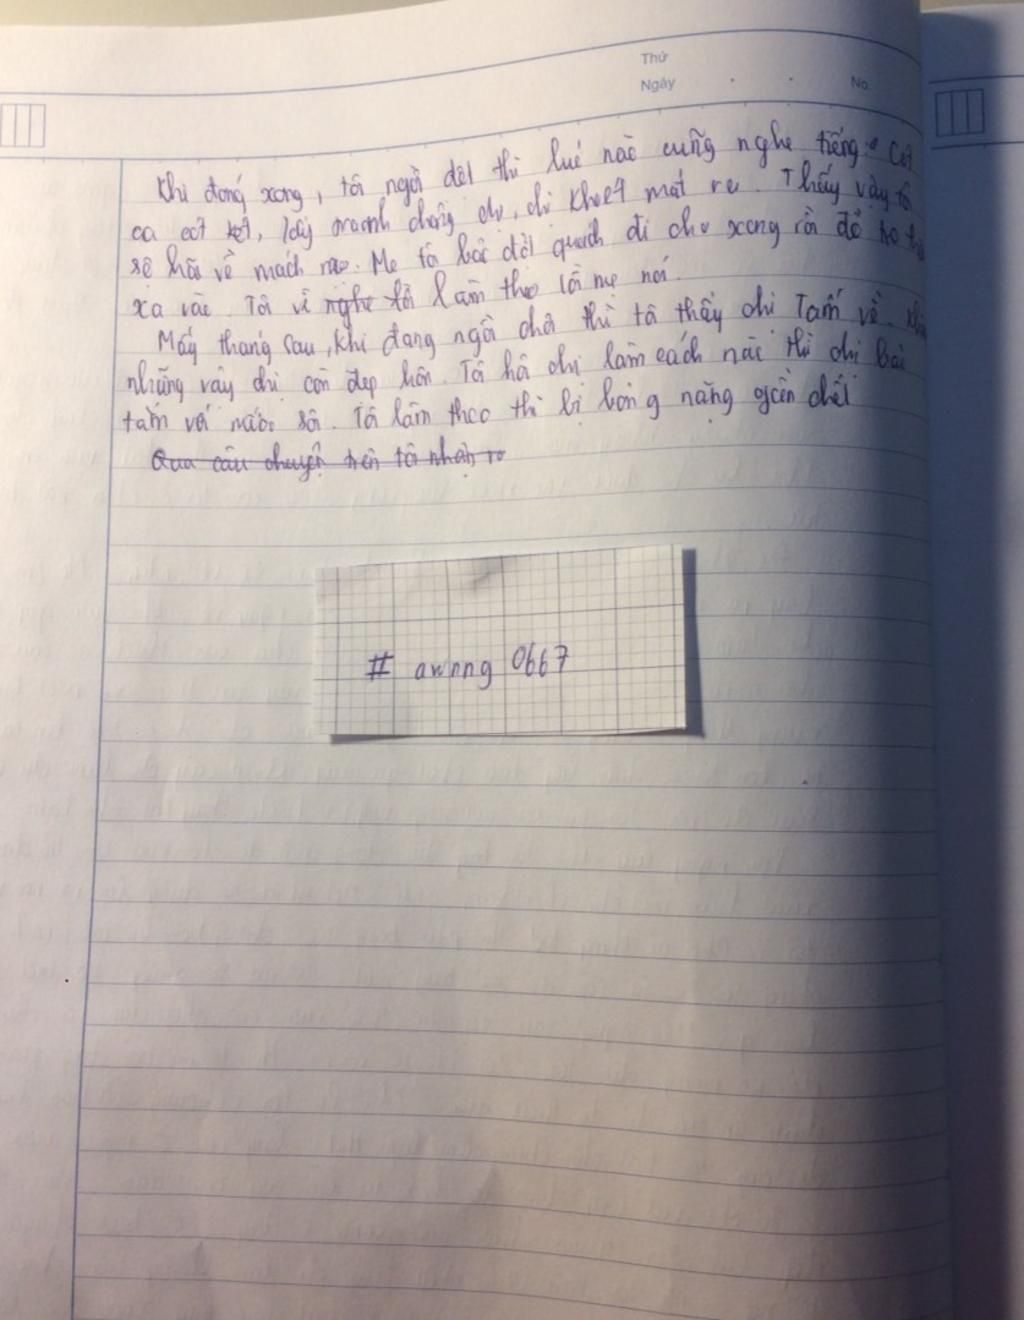 Thứ
Ngày
No.
Khi đóng xong, tôi ngồi dệt thì lúc nào cũng nghe tiếng Cót
ca cót két, lấy tranh chồng chị, chị khoét mắt ra. Thấy vậy tô
sợ hãi về mách mẹ. Mẹ tô bảo đốt quách đi cho xong rồi đổ tro
xa vào. Tôi vì nghe lời làm theo lời mẹ nói.
Mấy tháng sau, khi đang ngồi chơi thì tô thấy chị Tấm về.
nhưng vậy chị còn đẹp hơn. Tô hỏi chị làm cách nào thì chị bảo
tắm với nước sôi. Tô làm theo thì bị bỏng nặng gần chết
Qua câu chuyện trên tô nhận ra
# awnng 0667